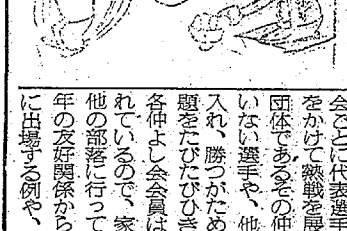 会ごとに代表選手
をかけて熱戦を展
団体であるその仲
いない選手や、他
入れ、勝つがため
題をたびたびひき
各仲よし会会員は
れているので、家
他の部落に行って
年の友好関係から
に出場する例や、